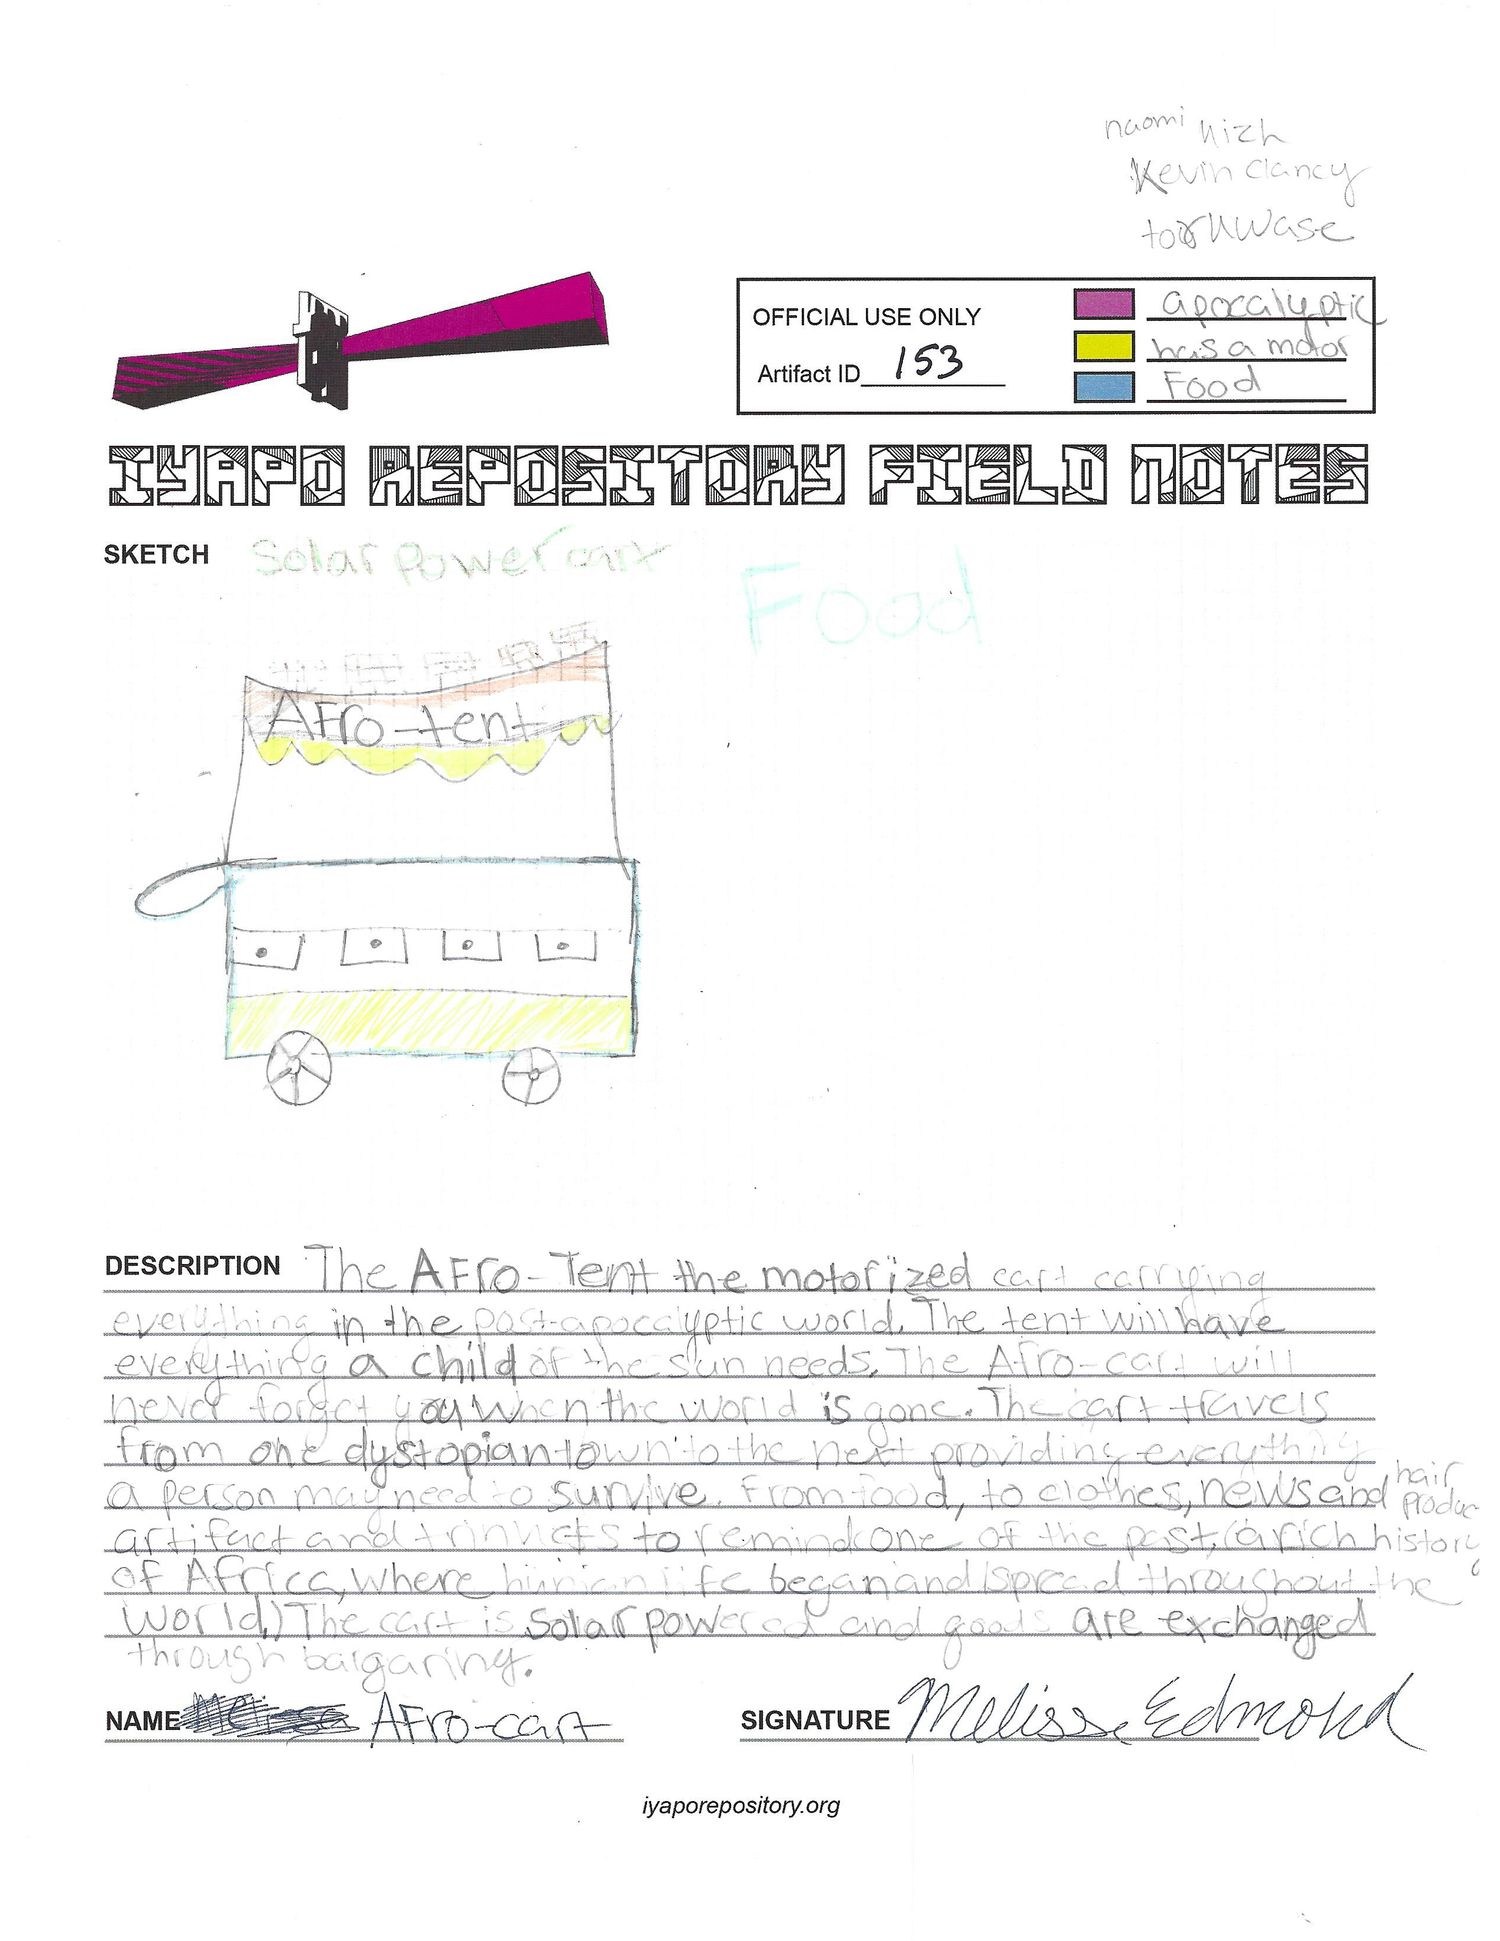 naomi
Kevin Clancy
OFFICIAL USE ONLY
Artifact ID 153
apocalyptic
has a motor
Food
IYAPO REPOSITORY FIELD NOTES
SKETCH Solar power cart
Food
Afro-tent
DESCRIPTION The Afro-Tent the motorized cart carrying
everything in the post-apocalyptic world. The tent will have
everything a child of the sun needs. The Afro-cart will
never forget you when the world is gone. The cart travels
from one dystopian town to the next providing everything
a person may need to survive. From food, to clothes, news and hair produc
artifact and trinkets to remind one of the past, (a rich history
of Africa, where human life began and spread throughout the
world.) The cart is solar powered and goods are exchanged
through bargaring.
NAME Afro-cart
SIGNATURE Melissa Edmond
iyaporepository.org